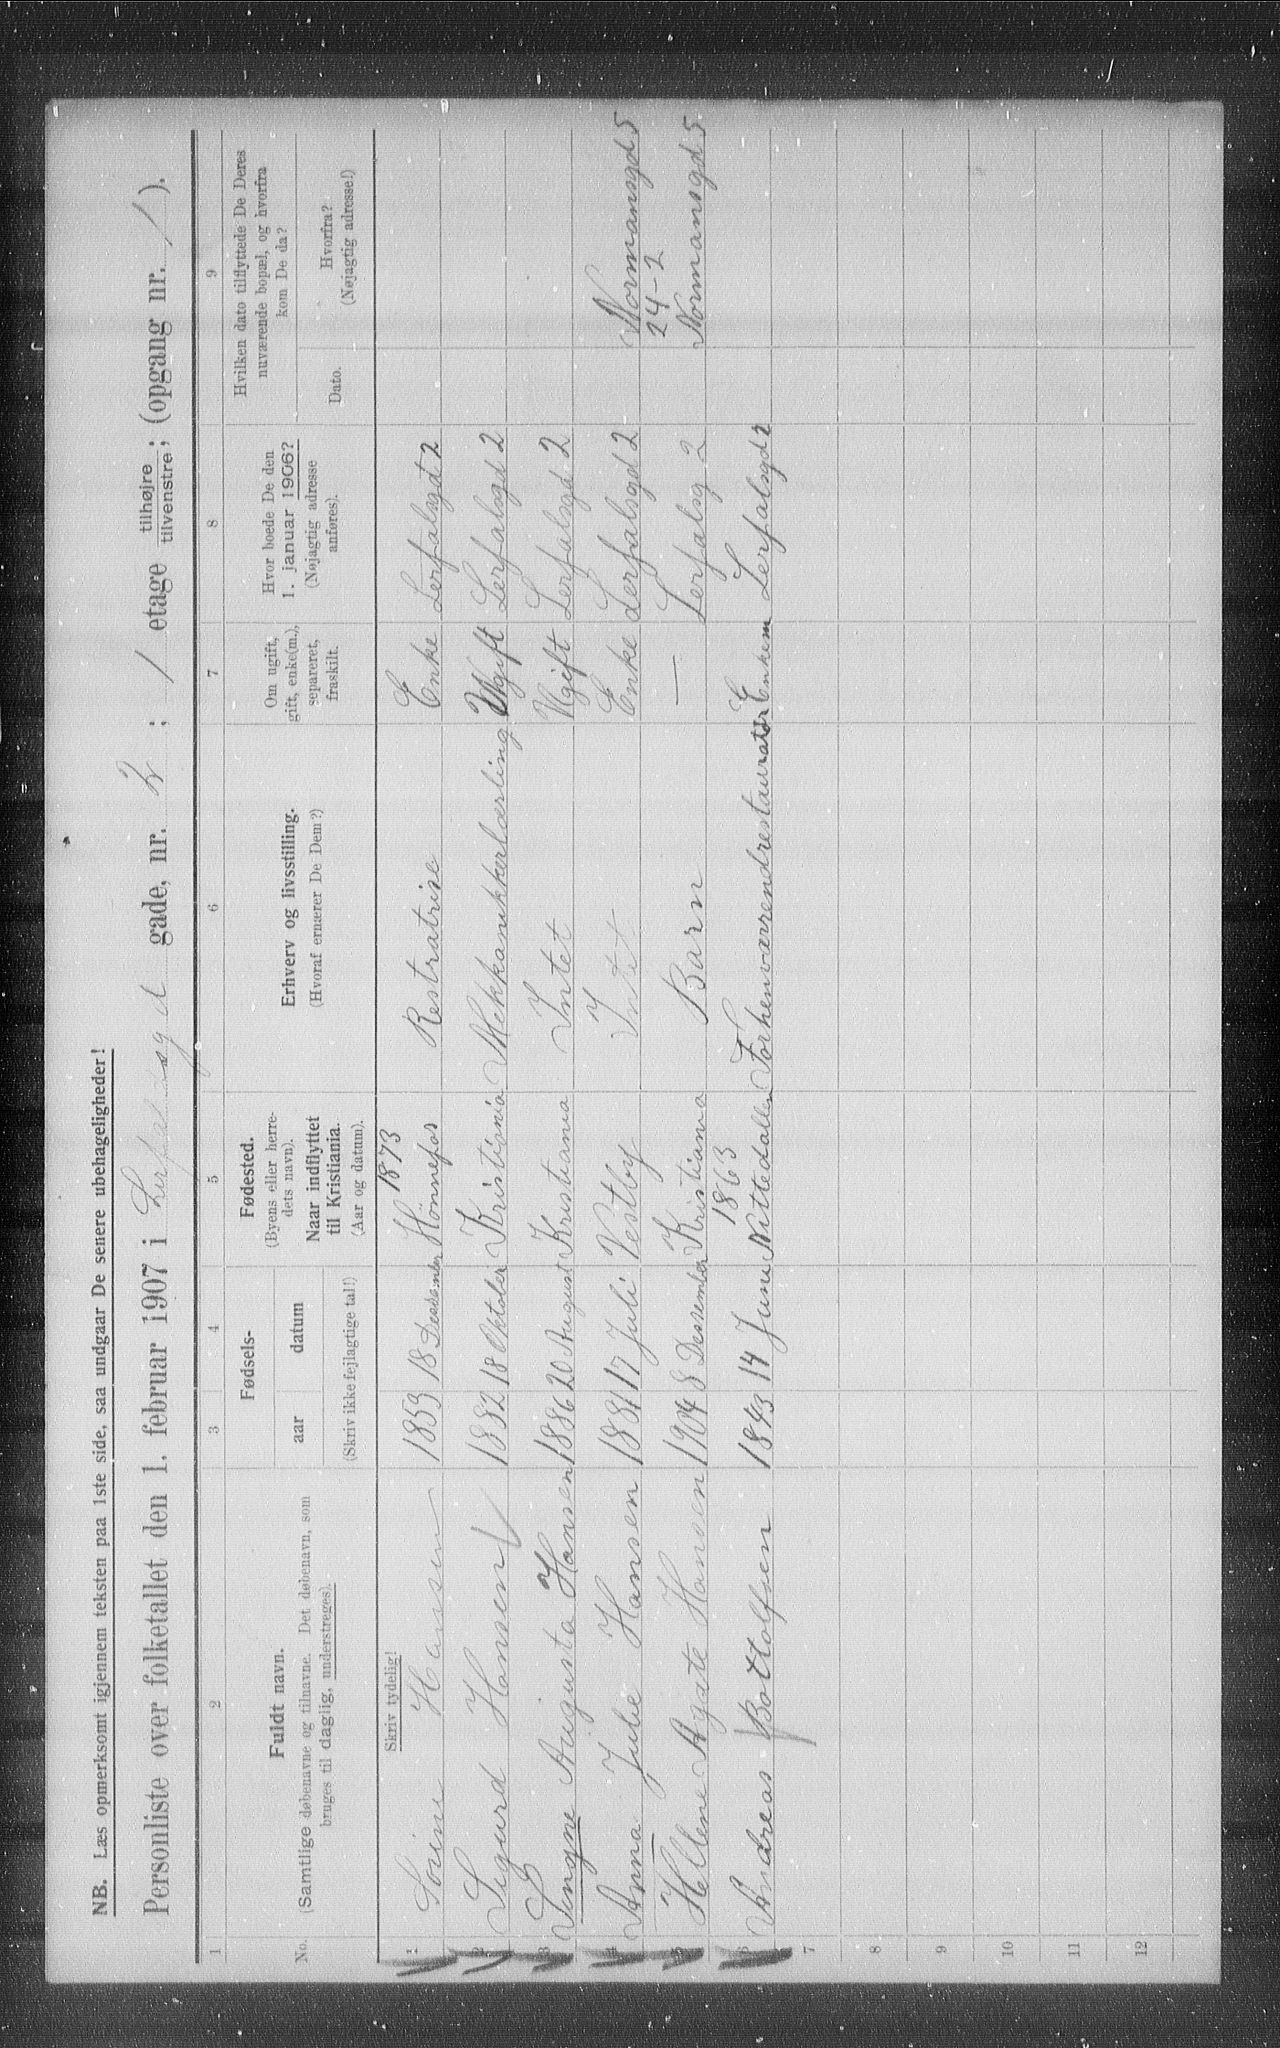 NB. Læs opmerksomt igjennem teksten paa 1ste side, saa undgaar De senere ubehageligheder!
Personliste over folketallet den 1. februar 1907 i Lerfalsgd gade, nr. 2 ; 1 etage tilhøjre ; (opgang nr. 1 ).
tilvenstre ;
1 2 3 4 5 6 7 8 9
No. Fuldt navn.
(Samtlige døbenavne og tilnavne. Det døbenavn, som
bruges til daglig, understreges).
Fødsels-
aar datum
(Skriv ikke fejlagtige tal!)
Fødested.
(Byens eller herre-
dets navn).
Naar indflyttet
til Kristiania.
(Aar og datum).
Erhverv og livsstilling.
(Hvoraf ernærer De Dem?)
Om ugift,
gift, enke(m.),
separeret,
fraskilt.
Hvor boede De den
1. januar 1906?
(Nøjagtig adresse
anføres).
Hvilken dato tilflyttede De Deres
nuværende bopæl, og hvorfra
kom De da?
Dato.
Hvorfra?
(Nøjagtig adresse!)
Skriv tydelig!
1873
1 Hansen 1853 18 Hønnefos Restratrise Enke Lerfalsgd 2
2 Sigurd Hansen 1882 18 Oktober Kristiania Mekkanikkerlærling Ugift Lerfalsgd 2
3 Singne Augusta Hansen 1886 20 August Kristiania Intet Ugift Lerfalsgd 2
4 Anna Julie Hansen 1881 17 Juli Vestby Intet Enke Lerfalsgd 2 Normansgd 5
24-2
5 Hellene Agate Hansen 1904 8 Dessember Kristiania Barn — Lerfalsg 2 Normansgd 5
1863
6 Andreas Bottolfsen 1843 14 Juni Nittedallen Forhenværrendrestauratør Enkem Lerfalsgd 2
7
8
9
10
11
12